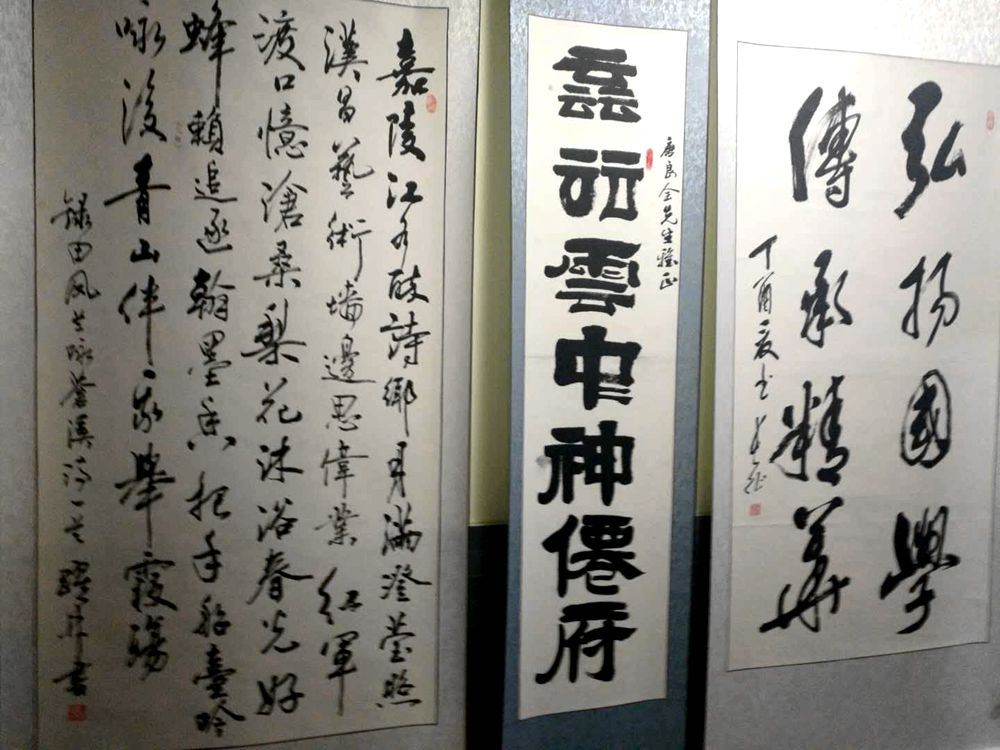 弘扬國學
傳承精華
丁酉夏书
唐良全先生雅正
行雲中神僊府
嘉陵江水醉詩鄉月滿澄瑩照
漢昌藝術墙邊思偉業紅軍
渡口憶滄桑梨花沐浴春光好
蜂賴追逐翰墨香把手臺吟
咏後青山伴我舉霞觴
録田风兰咏蒼溪诗一首 書